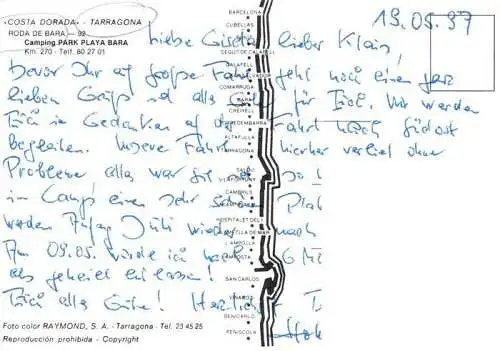 «COSTA DORADA» - TARRAGONA
RODA DE BARA - 92
Camping PARK PLAYA BARA
Km. 270 - Telf. 80 27 01
19.05.97
Liebe Gisela, lieber Klaus!
bevor Ihr auf große Fahrt geht noch einen ganz
lieben Gruß und alles Gute für Euch. Wir werden
Euch in Gedanken auf der Fahrt nach Südost
begleiten. Unsere Fahrt hierher verlief ohne
Probleme alles war
im Camp einen sehr schönen Platz
werden Anfang Juli wieder nach
Am 09.05. wurde ich nach 6
als geheilt entlassen!
Euch alles Gute! Herzlichst
BARCELONA
CUBELLAS
SEGUR DE CALAFELL
CALAFELL
SALVADOR
COMARRUGA
BARA
CREIXELL
TORREDEMBARRA
ALTAFULLA
TARRAGONA
SALOU
VILAFORTUNY
CAMBRILS
MIAMI
HOSPITALET DEL
AMETLLA DE MAR
LAMPOLLA
AMPOSTA
SAN CARLOS
VINAROZ
BENICARLO
PEÑISCOLA
Foto color RAYMOND, S. A. - Tarragona - Tel. 23 45 25
Reproducción prohibida - Copyright